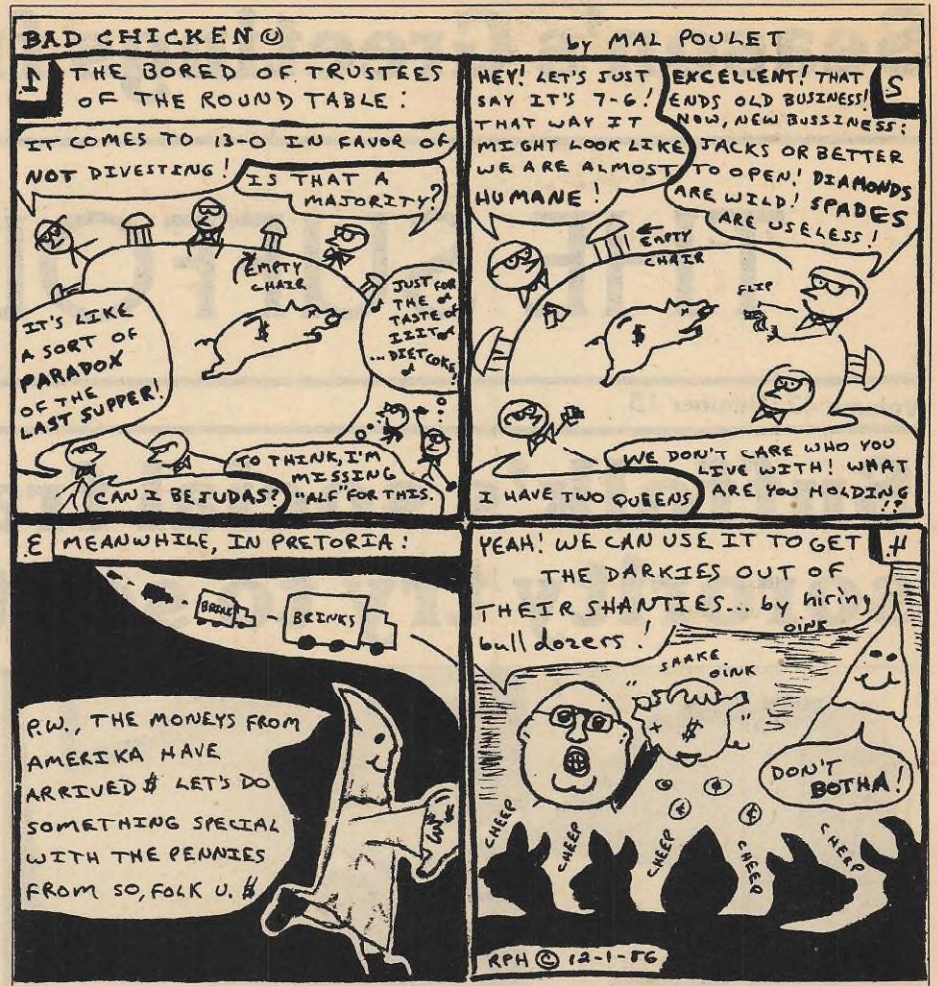 BAD CHICKEN ©
by MAL POULET
1
THE BORED OF TRUSTEES
OF THE ROUND TABLE:
IT COMES TO 13-0 IN FAVOR OF
NOT DIVESTING!
IS THAT A
MAJORITY?
EMPTY
CHAIR
$
JUST FOR
THE
TASTE OF
IIIT
...DIET COKE!
IT'S LIKE
A SORT OF
PARADOX
OF THE
LAST SUPPER!
CAN I BE JUDAS?
TO THINK, I'M
MISSING
"ALF" FOR THIS.
2
HEY! LET'S JUST
SAY IT'S 7-6!
THAT WAY IT
MIGHT LOOK LIKE
WE ARE ALMOST
HUMANE!
EXCELLENT! THAT
ENDS OLD BUSINESS!
NOW, NEW BUSSINESS:
JACKS OR BETTER
TO OPEN! DIAMONDS
ARE WILD! SPADES
ARE USELESS!
EMPTY
CHAIR
FLIP
$
I HAVE TWO QUEENS
WE DON'T CARE WHO YOU
LIVE WITH! WHAT
ARE YOU HOLDING
!?
3
MEANWHILE, IN PRETORIA:
BRINKS
BRINKS
P.W., THE MONEYS FROM
AMERIKA HAVE
ARRIVED $ LET'S DO
SOMETHING SPECIAL
WITH THE PENNIES
FROM SO, FOLK U. $
4.
YEAH! WE CAN USE IT TO GET
THE DARKIES OUT OF
THEIR SHANTIES... by hiring
bull dozers!
OINK
SHAKE
OINK
$
DON'T
BOTHA!
¢
¢
¢
CHEEP
CHEEP
CHEEP
CHEEP
CHEEP
RPH © 12-1-86